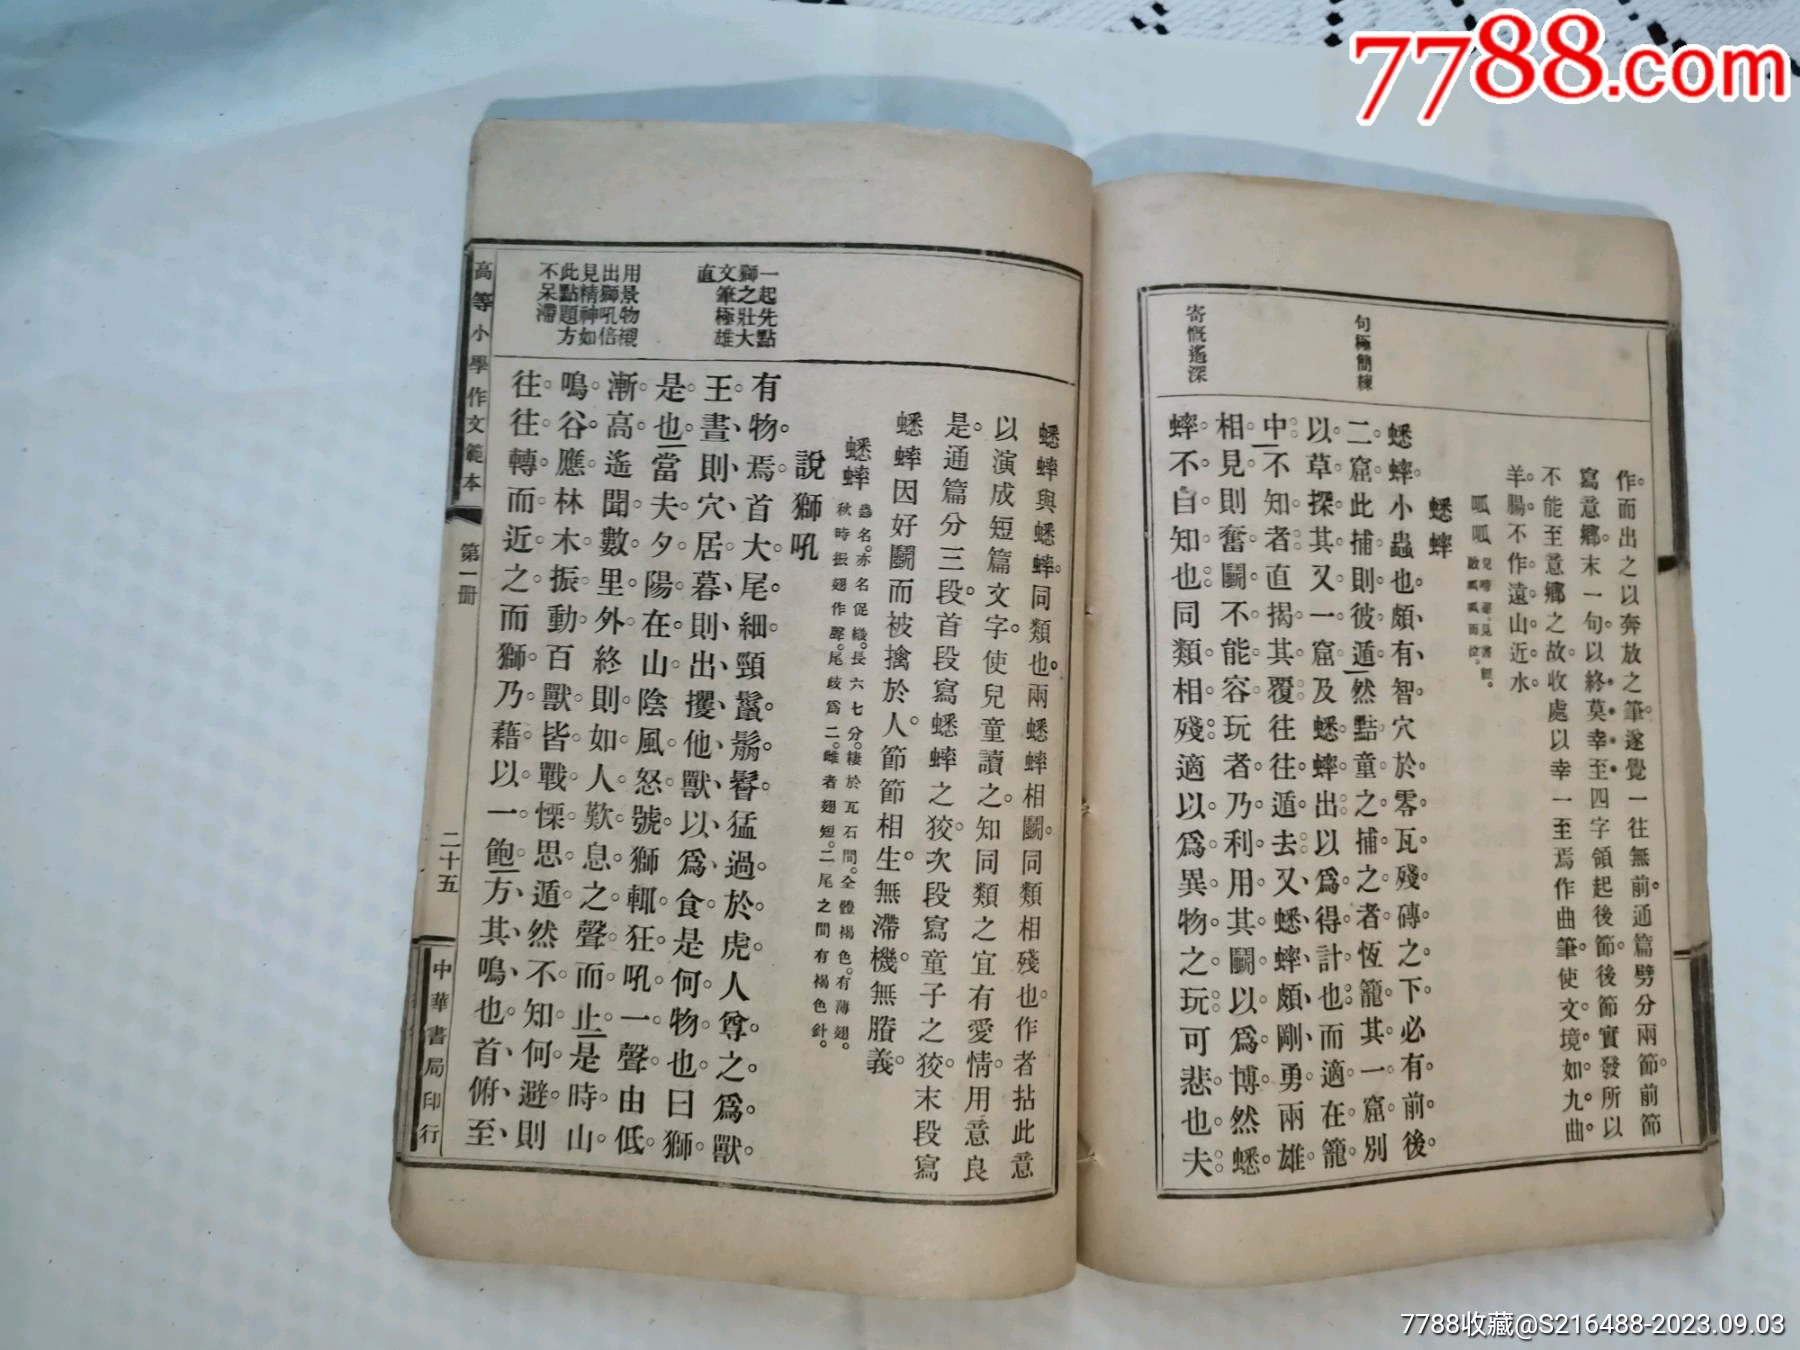 7788.com
句極簡練
寄慨遙深
作而出之以奔放之筆。遂覺一往無前。通篇劈分兩節。前節
寫意鄉。末一句。以終莫幸至四字領起後節。後節實發所以
不能至意鄉之故。收處以幸一至焉作曲筆。使文境如九曲。
羊腸。不作遠山近水。
呱呱 兒啼聲。見書經。
啟呱呱而泣。
蟋蟀
蟋蟀。小蟲也。頗有智。穴於零瓦。殘磚。之下。必有前後。
二窟。此捕則彼遁。然黠童之捕之者。恆籠其一窟。別
以草探其又一窟。及蟋蟀出。以爲得計也。而適在籠。
中。不知者。直揭其覆。往往遁去。又蟋蟀。頗剛勇。兩雄
相見。則奮鬭。不能容。玩者。乃利用其鬭。以爲博。然蟋
蟀不自知也。同類相殘。適以爲異物之玩。可悲也。夫。
一起先點
獅之壯大
文筆極雄
直
用景物襯
出獅吼倍
見精神如
此點題方
不呆滯
蟋蟀與蟋蟀。同類也。兩蟋蟀相鬭。同類相殘也。作者拈此意
以演成短篇文字。使兒童讀之。知同類之宜有愛情。用意良
是。通篇分三段。首段寫蟋蟀之狡。次段寫童子之狡。末段寫
蟋蟀因好鬭而被擒於人。節節相生。無滯機。無賸義。
蟋蟀 蟲名。亦名促織。長六七分。棲於瓦石間。全體褐色。有薄翅。
秋時振翅作聲。尾歧爲二。雌者翅短。二尾之間有褐色針。
說獅吼
有物。焉。首大。尾細。頸鬣。鬅。鬙。猛過於虎。人尊之。爲獸。
王。晝則穴居。暮則出攫他獸以爲食。是何物也。曰獅。
是也。當夫夕陽在山。陰風怒號。獅輒狂吼。一聲由低。
漸高。遙聞數里外。終則如人歎息之聲。而止。是時。山
鳴谷應。林木振動。百獸皆戰慄。思遁。然不知何避。則
往往轉而近之。而獅。乃藉以一飽。方其鳴也。首俯至
高等小學作文範本 第一册 二十五 中華書局印行
7788收藏@S216488-2023.09.03